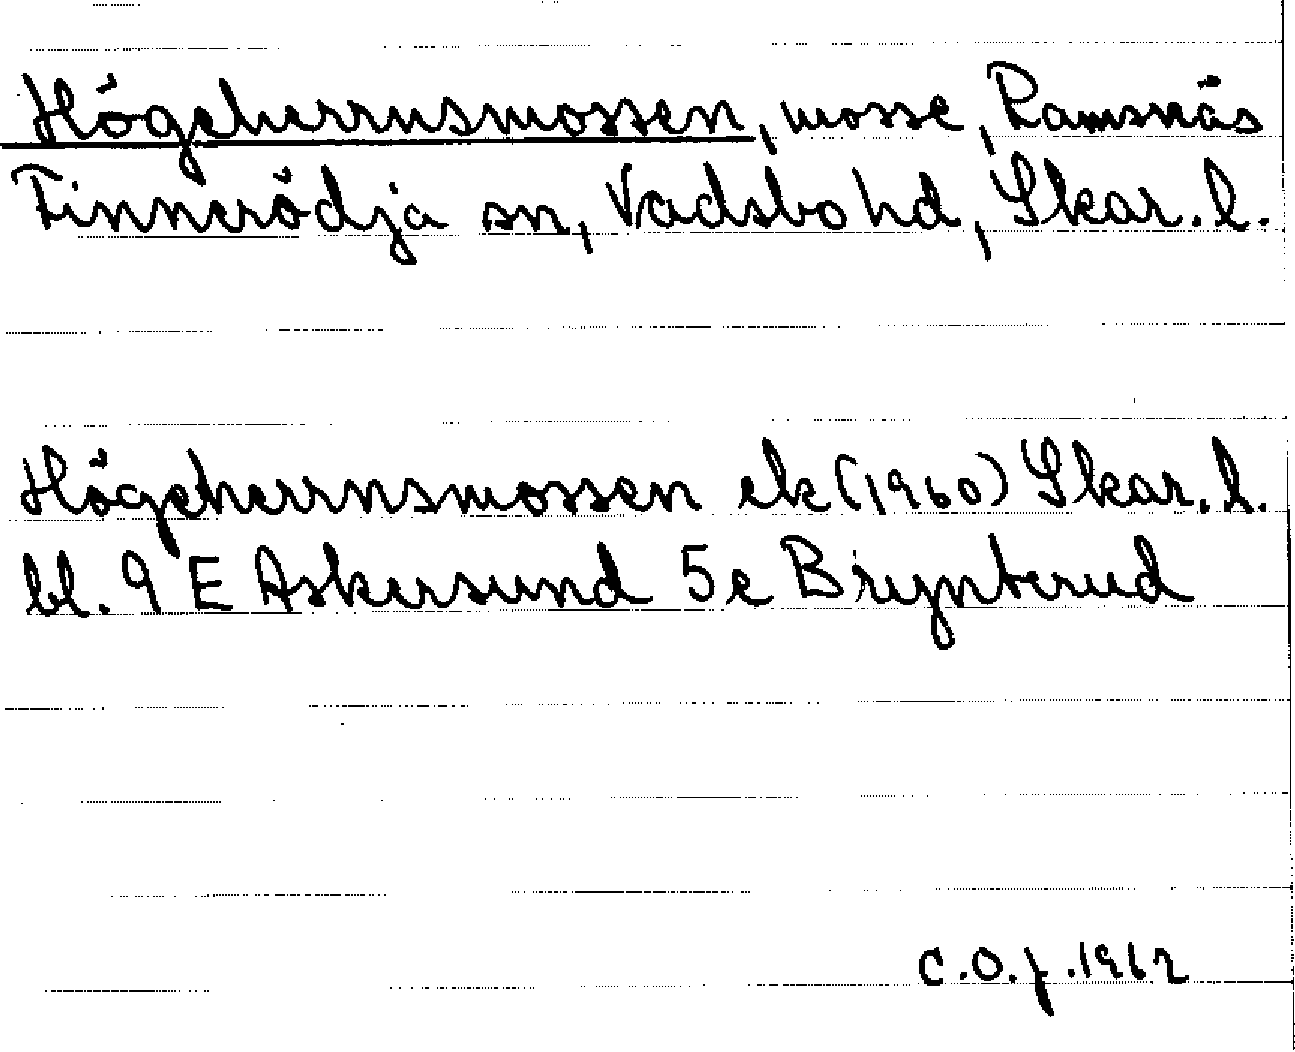 Högeherrnsmossen, mosse, Ramsnäs
Finnerödja sn, Vadsbo hd, Skar. l.
Högeherrnsmossen ek (1960) Skar. l.
bl. 9 E Askersund 5e Brynterud
C.O.f. 1962